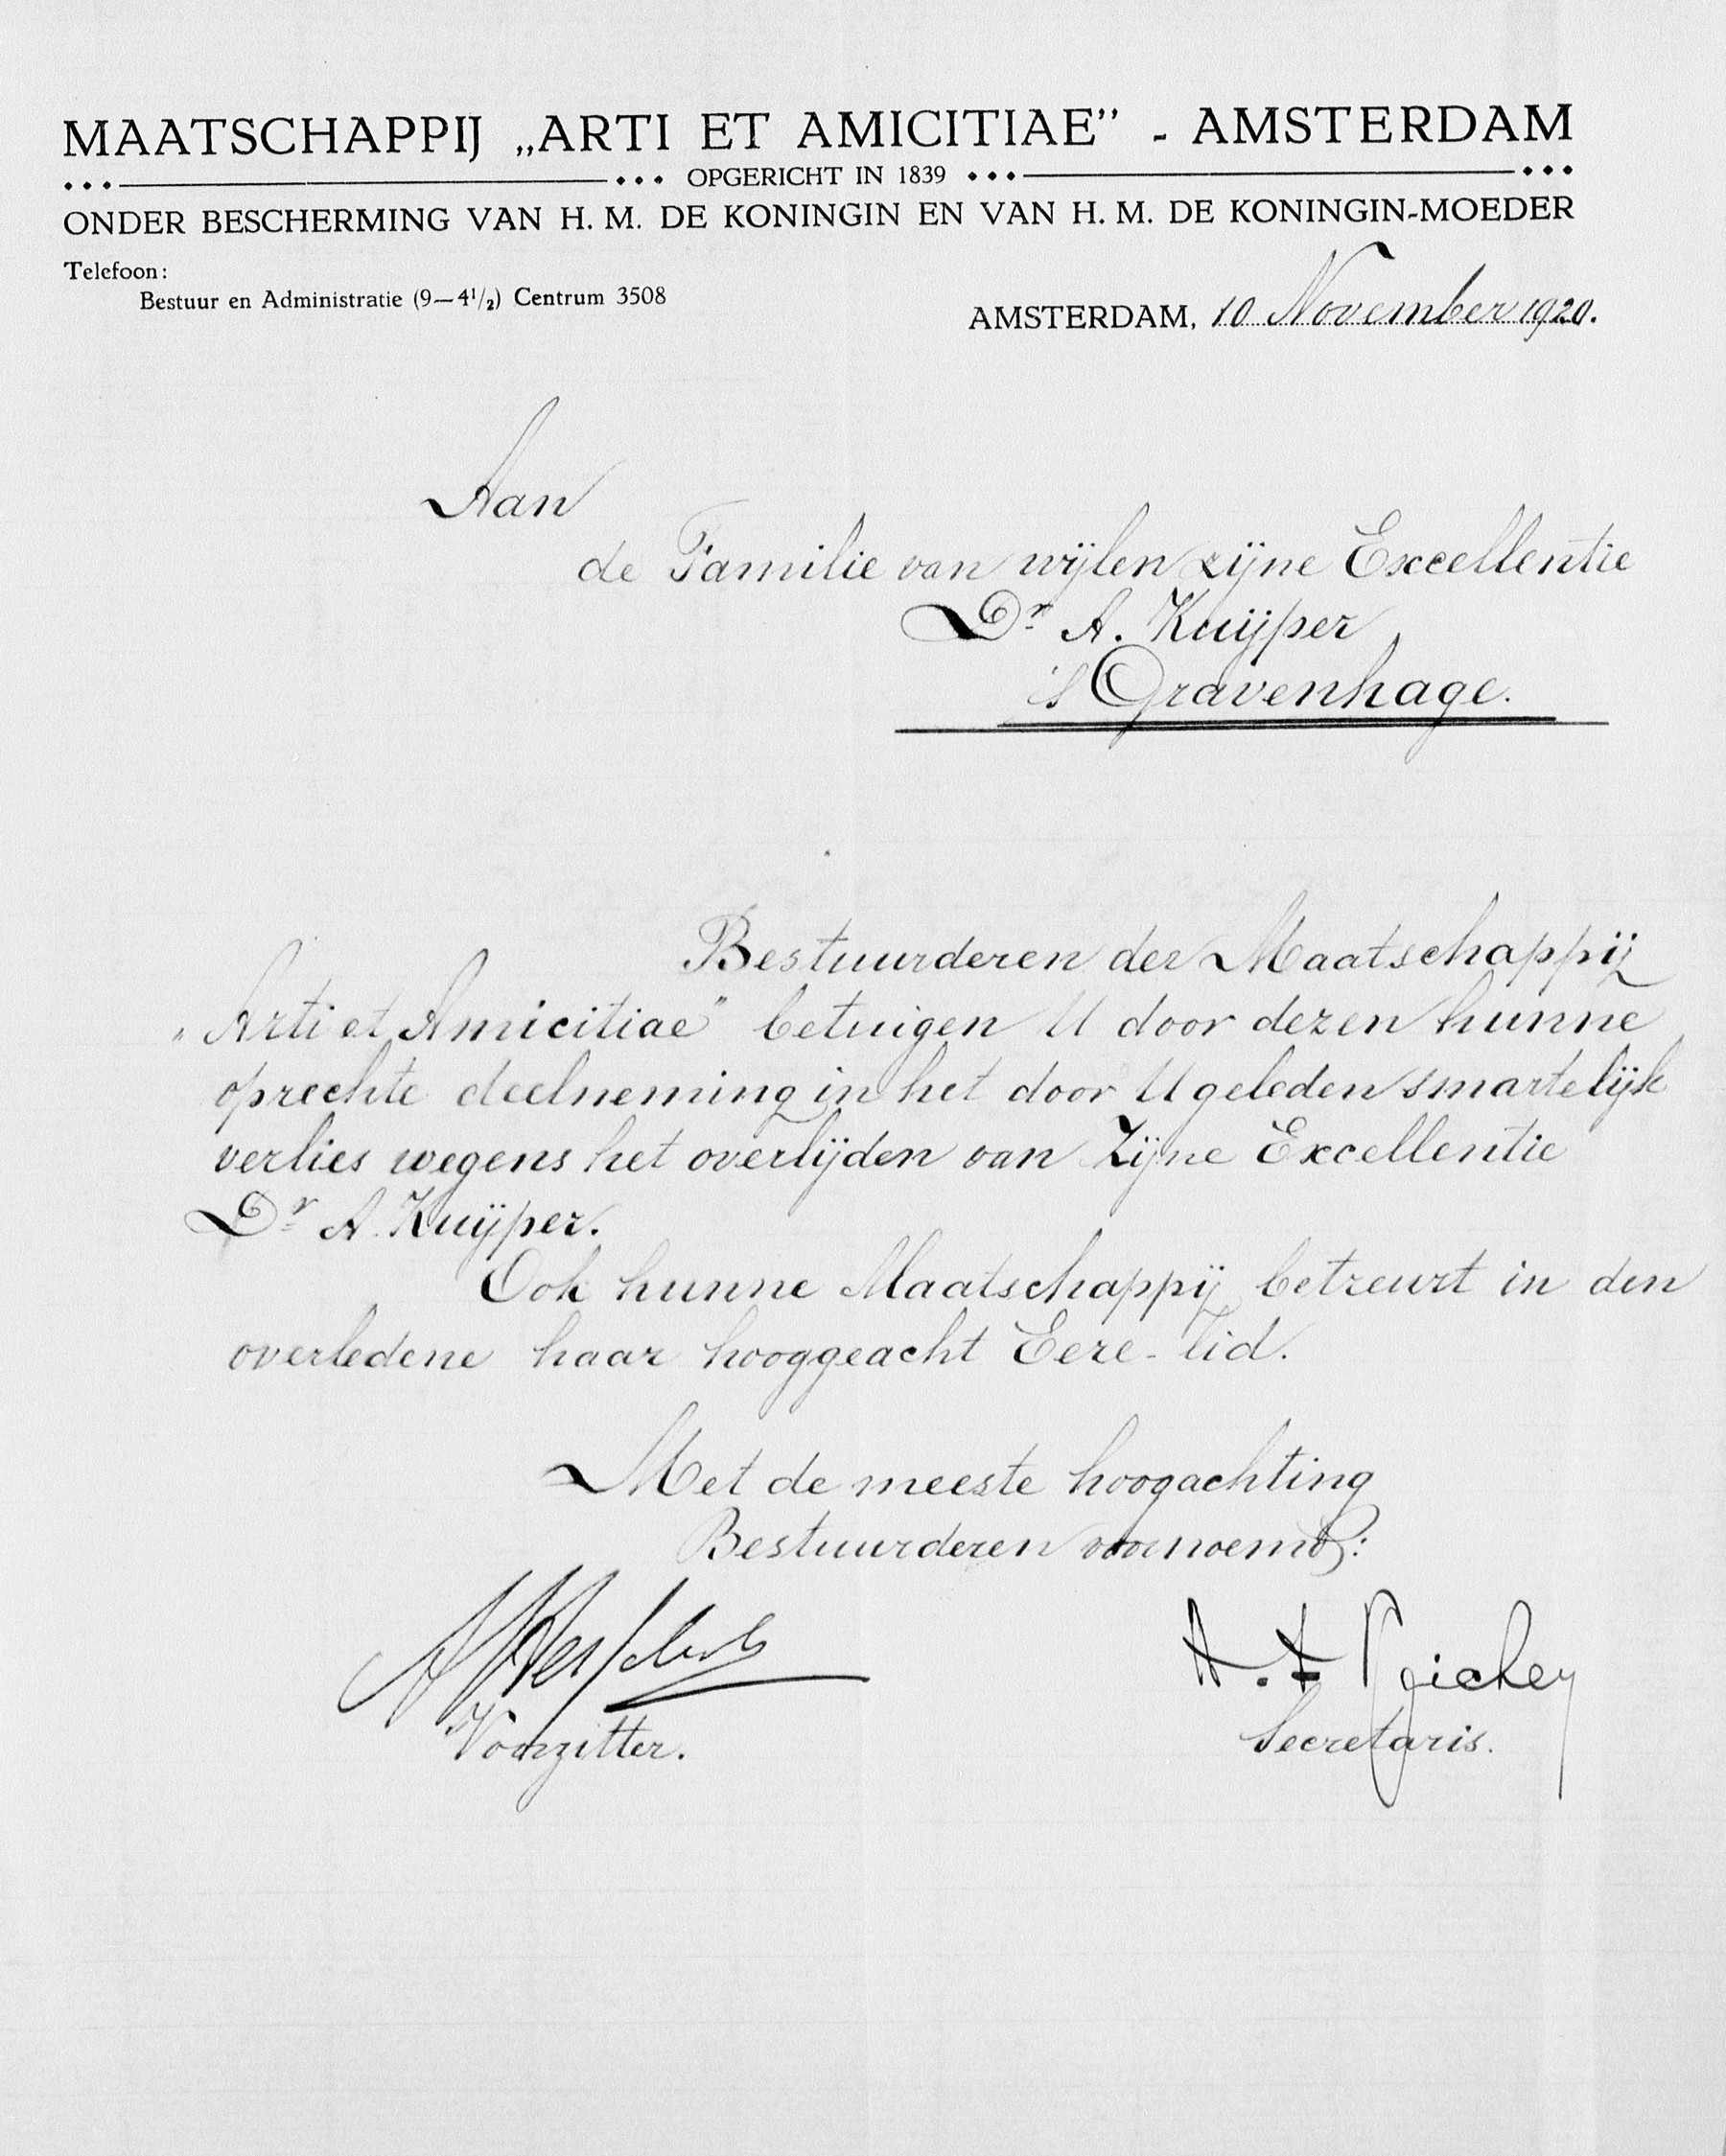 MAATSCHAPPIJ „ARTI ET AMICITIAE” - AMSTERDAM
OPGERICHT IN 1839
ONDER BESCHERMING VAN H. M. DE KONINGIN EN VAN H. M. DE KONINGIN-MOEDER
Telefoon:
Bestuur en Administratie (9—4½) Centrum 3508
AMSTERDAM, 10 November 1920.
Aan
de Familie van wijlen zijne Excellentie
Dr. A. Kuijper
's Gravenhage.
Bestuurderen der Maatschappij
„Arti et Amicitiae” betuigen U door dezen hunne
oprechte deelneming in het door U geleden smartelijk
verlies wegens het overlijden van Zijne Excellentie
Dr. A. Kuijper.
Ook hunne Maatschappij betreurt in den
overledene haar hooggeacht Eere-lid.
Met de meeste hoogachting
Bestuurderen voornoemd:
Voorzitter.
Secretaris.